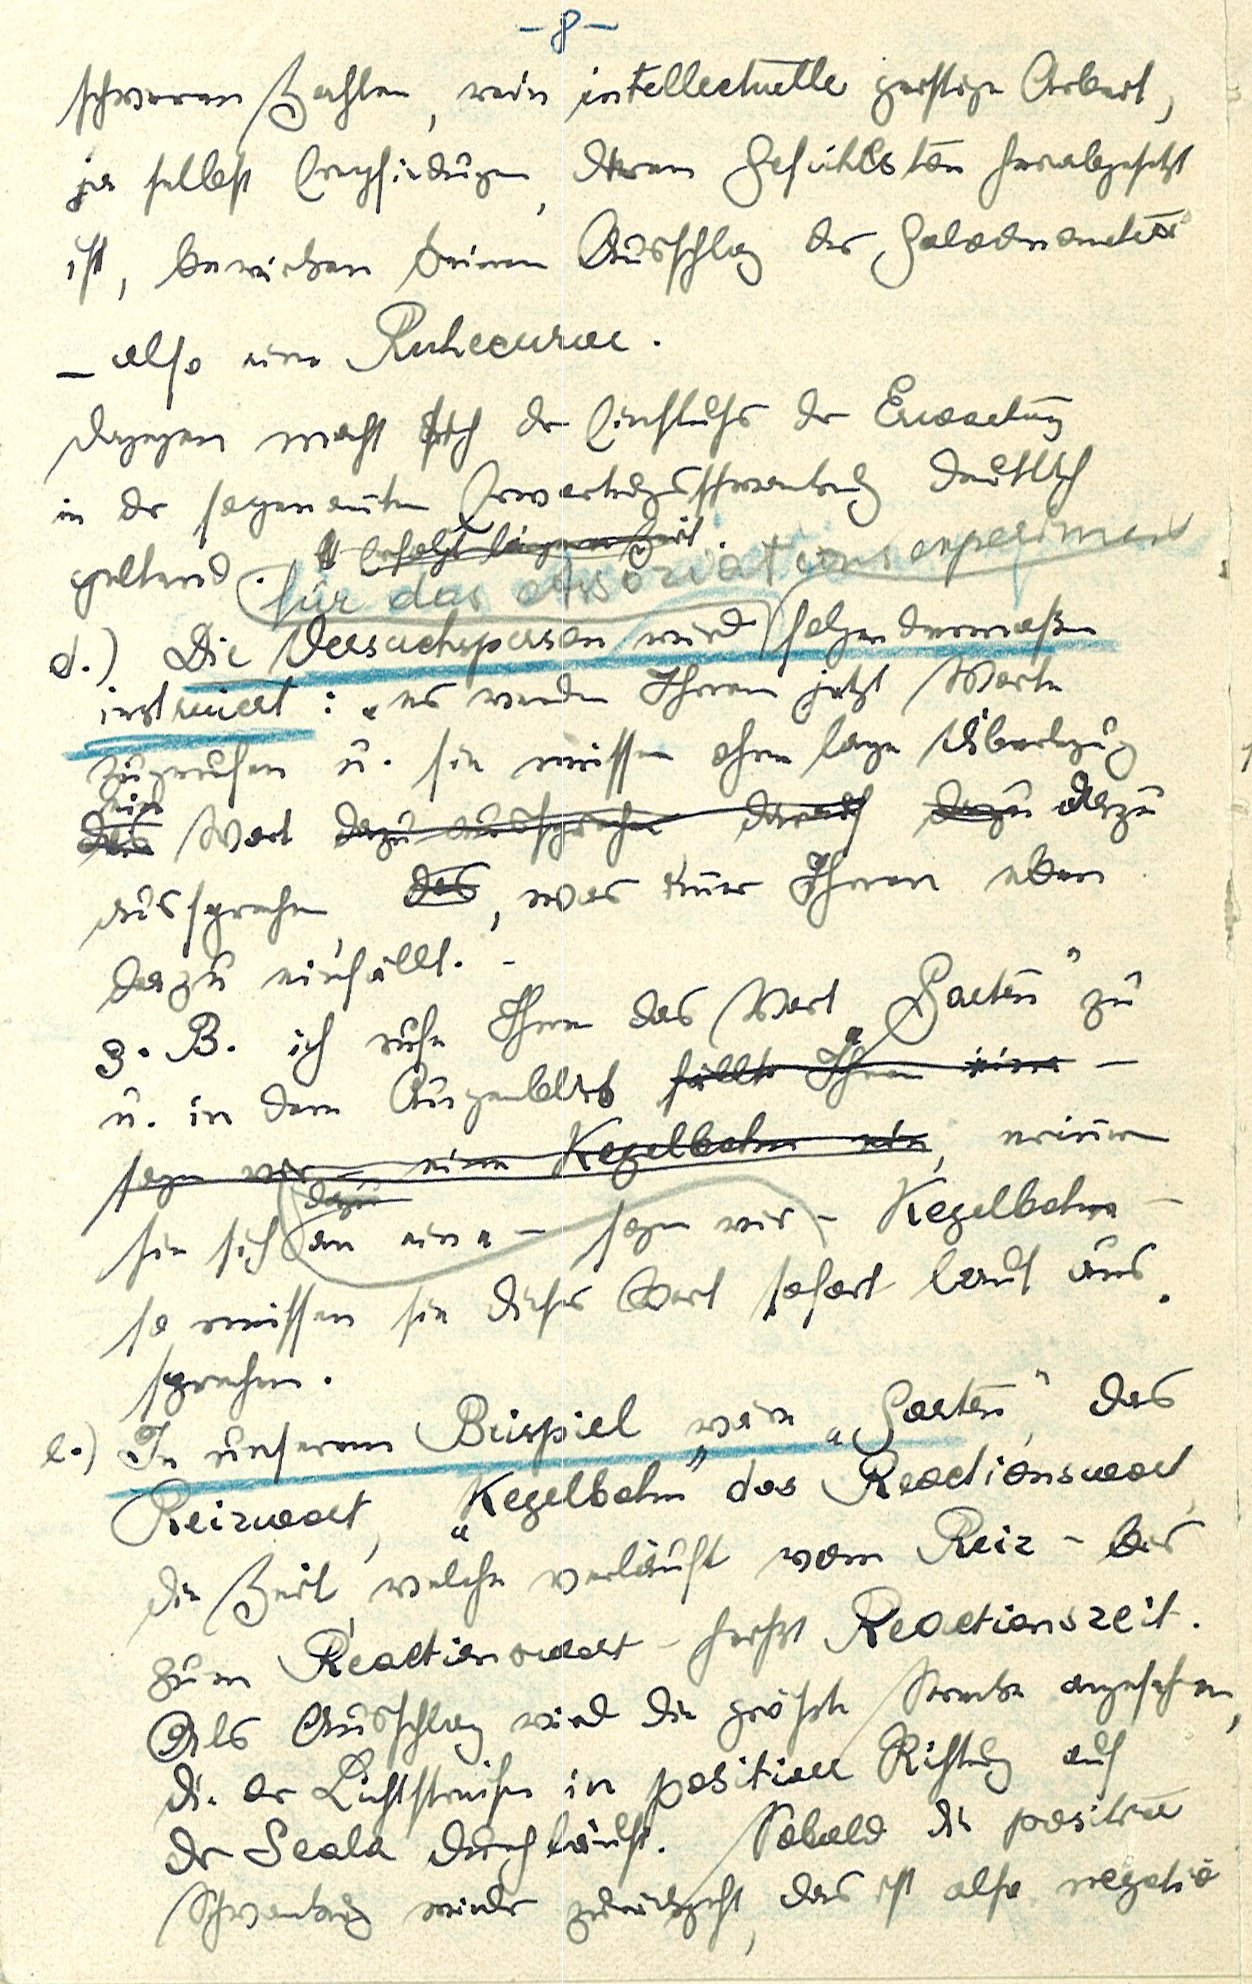 - 8 -
schweren Zahlen, rein intellectuelle geistige Arbeit,
ja selbst Empfindungen, deren Gefühlston herabgesetzt
ist, bewirken keinen Ausschlag des Galvanometers
– also eine Ruhecurve.
Dagegen macht sich der Einfluss der Erwartung
in der sogenannten Erwartungsschwankung deutlich
geltend.
für das Associationsexperiment
d.) Die Versuchsperson wird folgendermaßen
instruiert: „es werden Ihnen jetzt Worte
zugerufen u. sie müssen ohne lange Überlegung
ein
das Wort dazu aussprechen danach dazu dazu
aussprechen, das, was immer Ihnen eben
dazu einfällt. -
z. B. ich rufe Ihnen das Wort „Garten" zu
u. in dem Augenblick fällt Ihnen eine –
sagen wir – eine Kegelbahn ein, erinnern
dazu
sie sich an eine – sagen wir – Kegelbahn –
so müssen sie dieses Wort sofort laut aus-
sprechen.
e.) In unserem Beispiel wäre „Garten" das
Reizwort, „Kegelbahn" das Reactionswort,
die Zeit, welche verläuft vom Reiz – bis
zum Reactionswort – heißt Reactionszeit.
Als Ausschlag wird die größte Strecke angesehen,
die der Lichtstreifen in positiver Richtung auf
der Scala durchläuft. Sobald die positive
Schwankung wieder zurückgeht, das ist also negativ